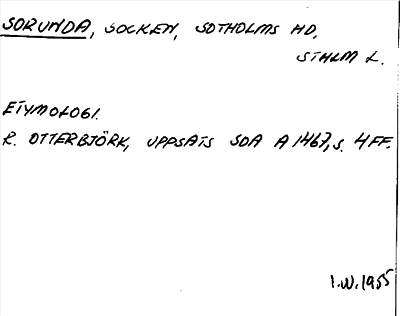 SORUNDA, SOCKEN, SOTHOLMS HD,
STHLM L.
ETYMOLOGI.
R. OTTERBJÖRK, UPPSATS SOA A 1467, S. 4 FF.
I.W. 1955